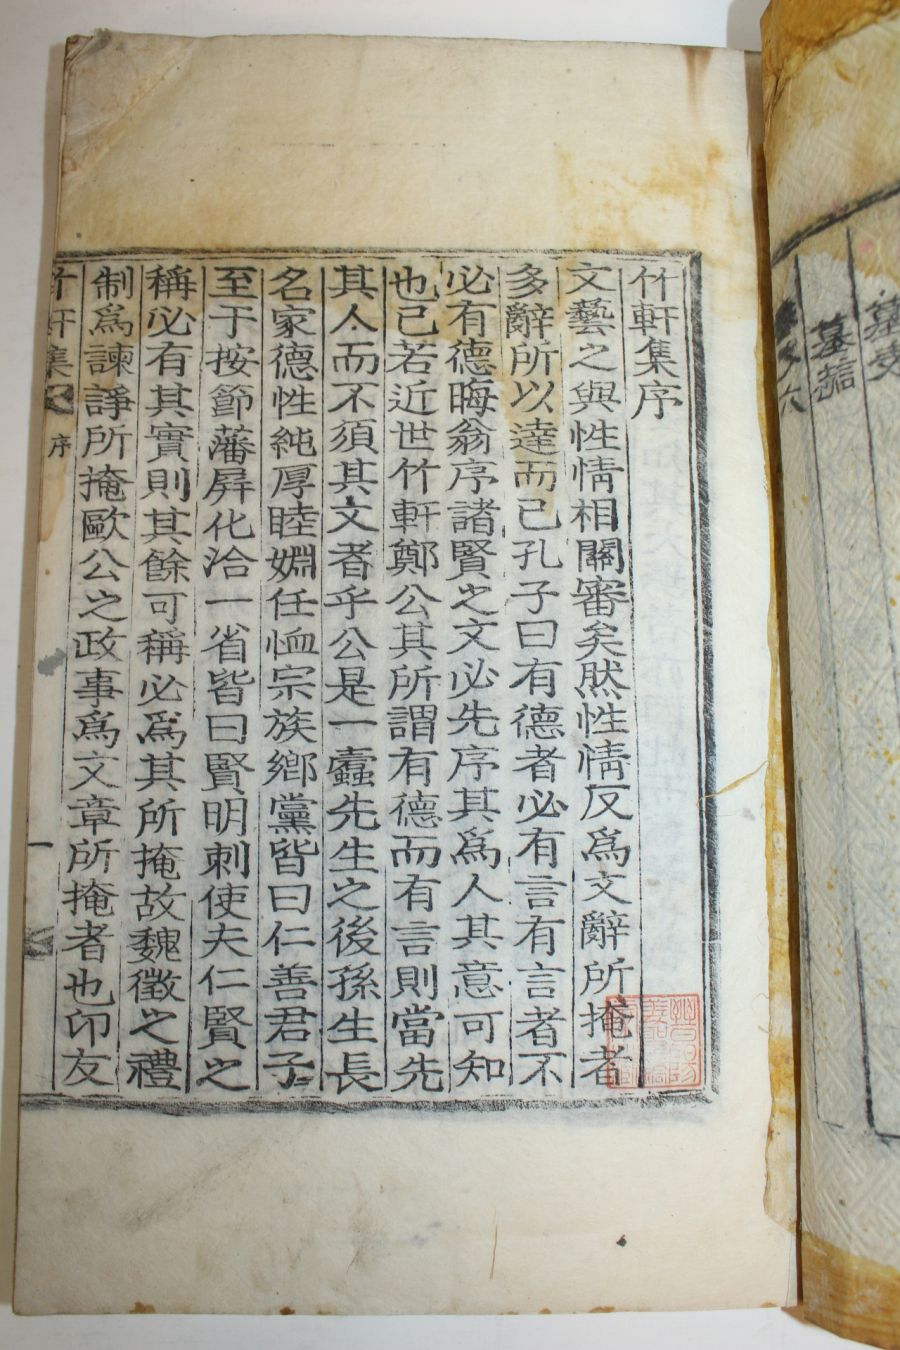 竹軒集序
文藝之與性情相關審矣然性情反爲文辭所掩者
多辭所以達而已孔子曰有德者必有言有言者不
必有德晦翁序諸賢之文必先序其爲人其意可知
也已若近世竹軒鄭公其所謂有德而有言則當先
其人而不須其文者乎公是一蠹先生之後孫生長
名家德性純厚睦婣任恤宗族鄉黨皆曰仁善君子
至于按節藩屛化洽一省皆曰賢明刺使夫仁賢之
稱必有其實則其餘可稱必爲其所掩故魏徵之禮
制爲諫諍所掩歐公之政事爲文章所掩者也卬友
竹軒集 序 一